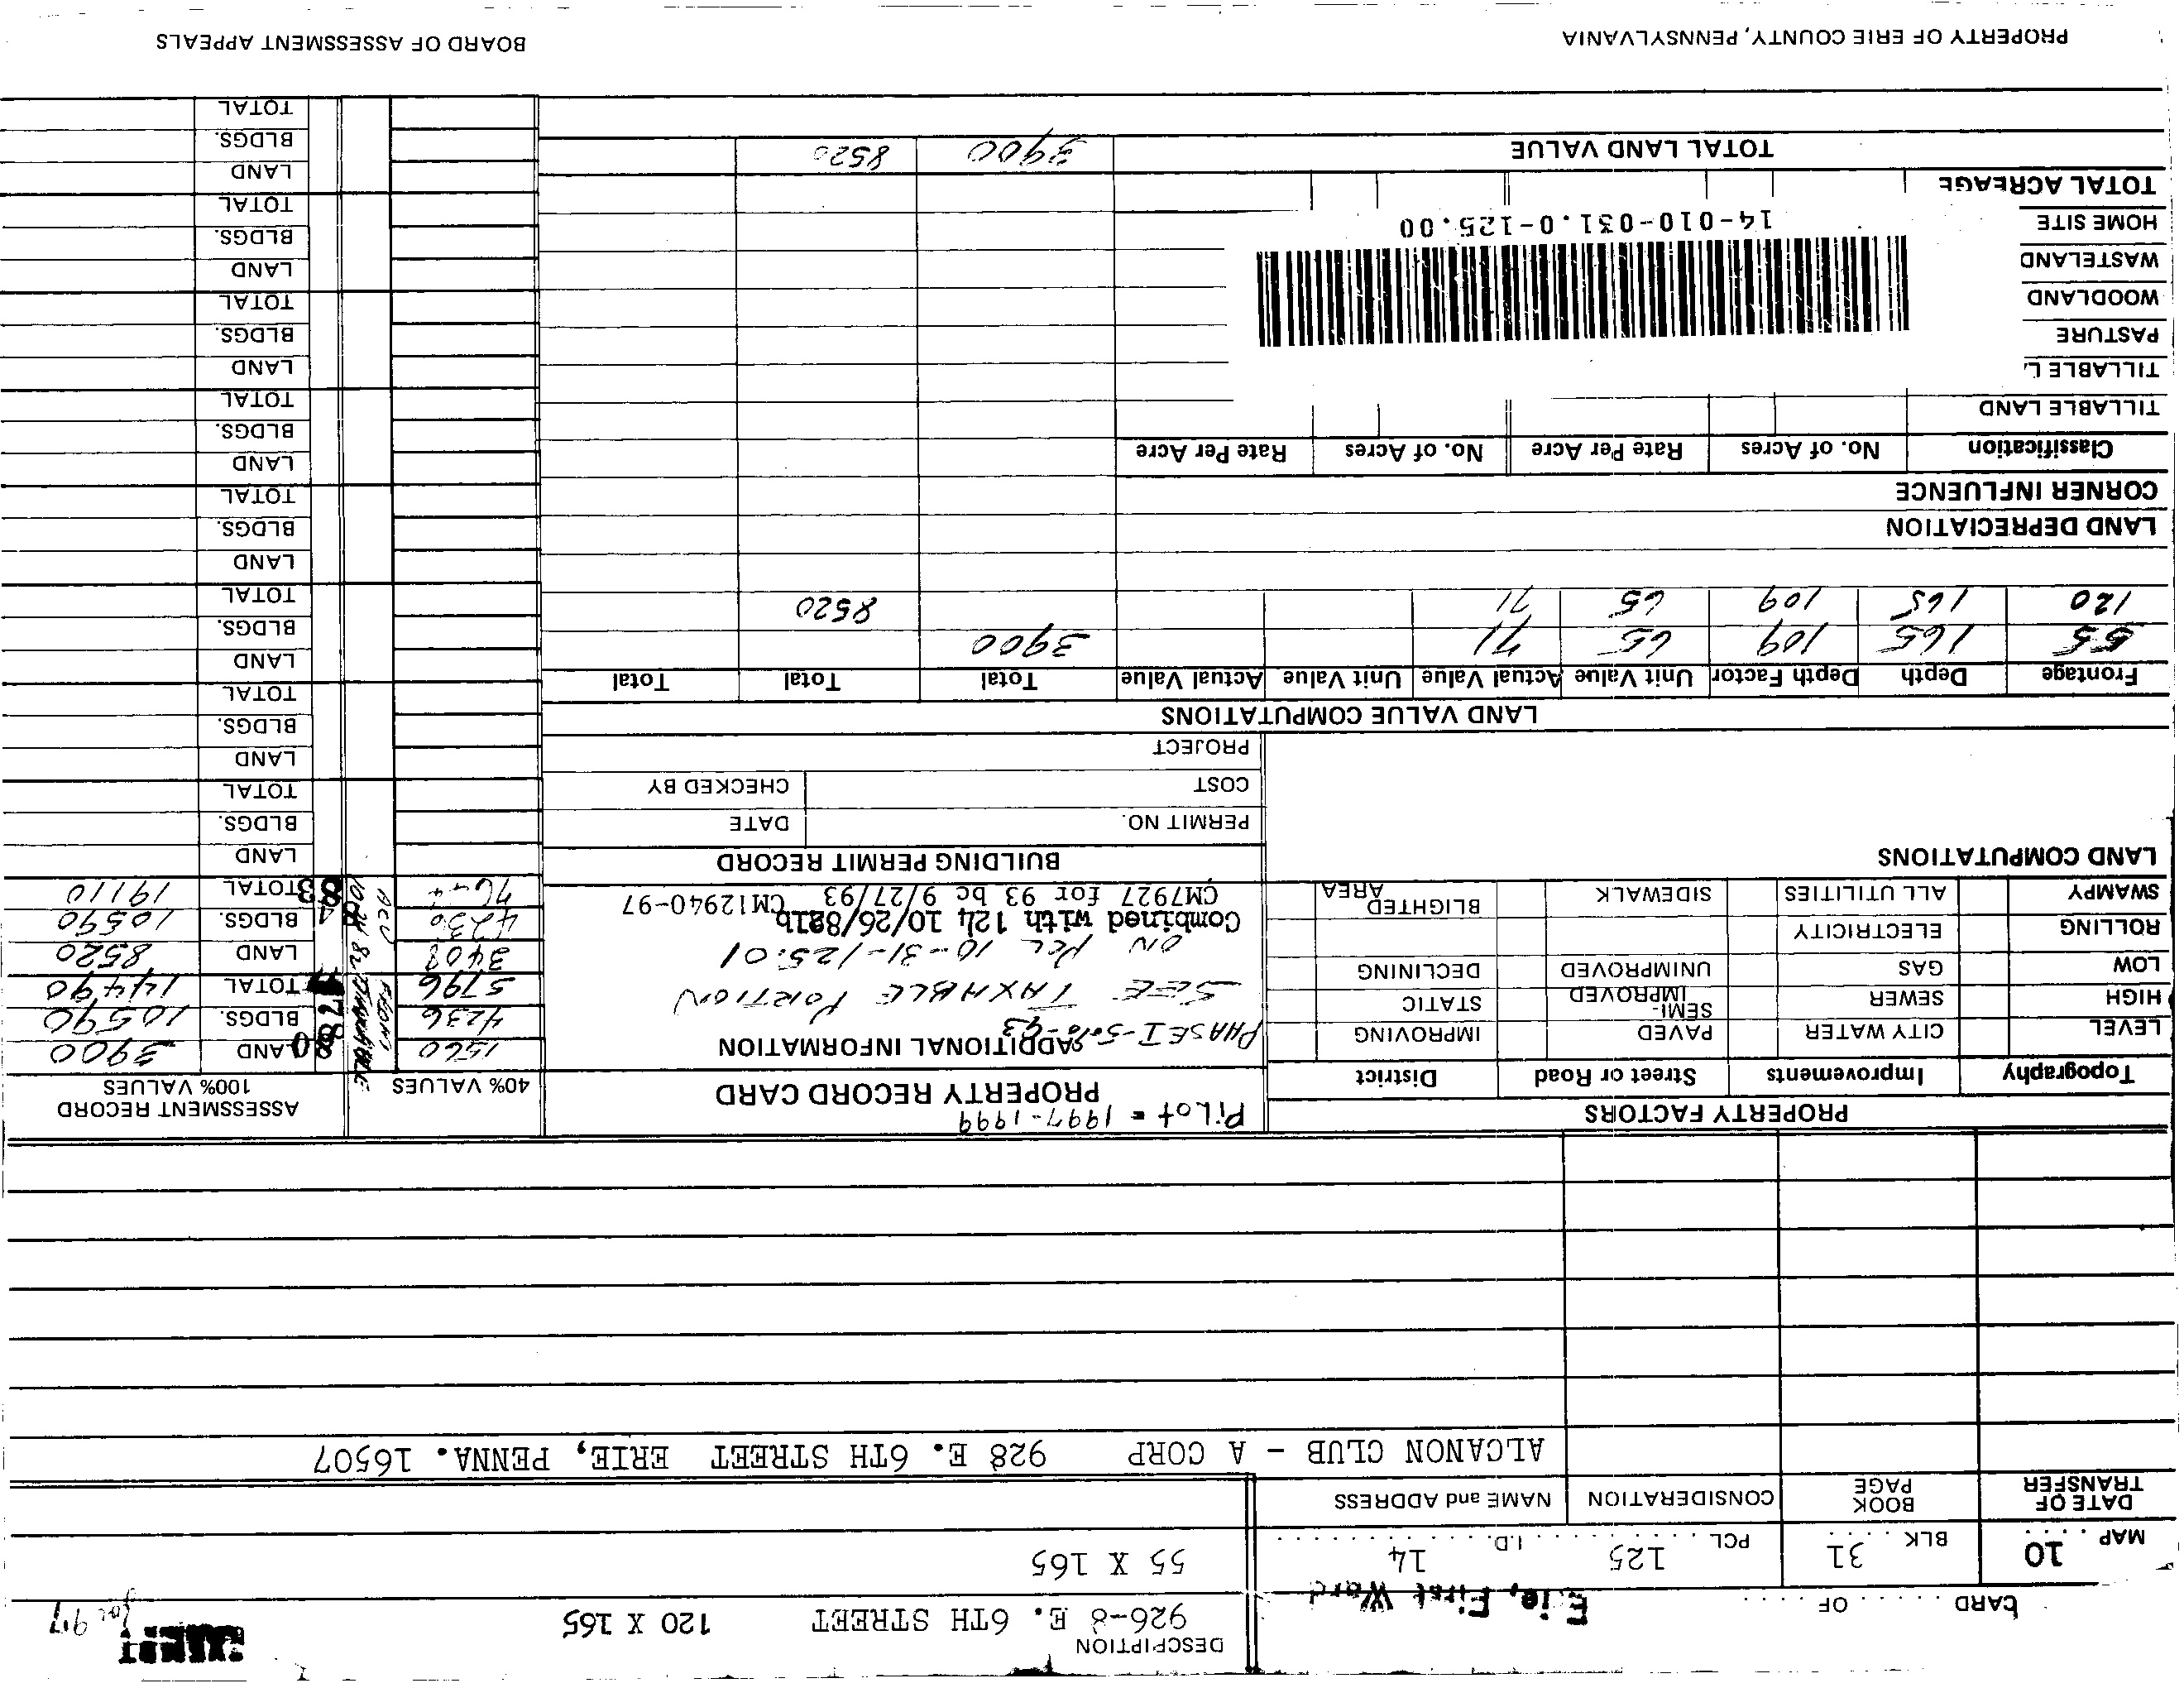 CARD ..... OF ....
Erie, First Ward
DESCRIPTION
926-8 E. 6TH STREET 120 X 165
55 X 165
EXEMPT
for 97
MAP 10 BLK 31 PCL. 125 I.D. 14
DATE OF TRANSFER BOOK PAGE CONSIDERATION NAME and ADDRESS
ALCANON CLUB - A CORP 928 E. 6TH STREET ERIE, PENNA. 16507
PROPERTY FACTORS
Topography Improvements Street or Road District
LEVEL CITY WATER PAVED IMPROVING
HIGH SEWER SEMI-IMPROVED STATIC
LOW GAS UNIMPROVED DECLINING
ROLLING ELECTRICITY BLIGHTED AREA
SWAMPY ALL UTILITIES SIDEWALK
LAND COMPUTATIONS
PiLot = 1997-1999
PROPERTY RECORD CARD
ADDITIONAL INFORMATION
PHASE I-5-
SEE TAXABLE PORTION
ON PCL 10-31-125.01
Combined with 124 10/26/82lb
CM7927 for 93 bc 9/27/93 CM12940-97
BUILDING PERMIT RECORD
PERMIT NO. DATE
COST CHECKED BY
PROJECT
40% VALUES
ASSESSMENT RECORD
100% VALUES
1560 LAND 3900
4236 BLDGS. 10590
5796 TOTAL 14490
3408 LAND 8520
4236 BLDGS. 10590
7644 TOTAL 19110
LAND
BLDGS.
TOTAL
LAND
BLDGS.
TOTAL
LAND
BLDGS.
TOTAL
LAND
BLDGS.
TOTAL
LAND
BLDGS.
TOTAL
LAND
BLDGS.
TOTAL
LAND
BLDGS.
TOTAL
LAND
BLDGS.
TOTAL
LAND VALUE COMPUTATIONS
Frontage Depth Depth Factor Unit Value Actual Value Unit Value Actual Value Total Total Total
55 165 109 65 71 3900
120 165 109 65 71 8520
LAND DEPRECIATION
CORNER INFLUENCE
Classification No. of Acres Rate Per Acre No. of Acres Rate Per Acre
TILLABLE LAND
TILLABLE L
PASTURE
WOODLAND
WASTELAND
HOME SITE
14-010-031.0-125.00
TOTAL ACREAGE
TOTAL LAND VALUE 3900 8520
PROPERTY OF ERIE COUNTY, PENNSYLVANIA
BOARD OF ASSESSMENT APPEALS